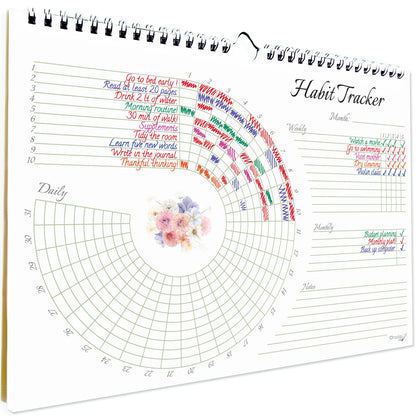 Habit Tracker
Month:
1
2
3
4
5
6
7
8
9
10
Go to bed early!
Read at least 20 pages
Drink 2 lt of water
Morning routine!
30 min. of walk!
Supplements
Tidy the room
Learn five new words
Write in the journal
Thankful thinking!
Daily
1
2
3
4
5
6
7
8
9
10
11
12
13
14
15
16
17
18
19
20
21
22
23
24
25
26
27
28
29
30
31
Weekly
Watch a movie
Go to swimming
Visit mother
Dry cleaning
Violin class
Monthly
Budget planning
Monthly plan!
Back up computer
Notes